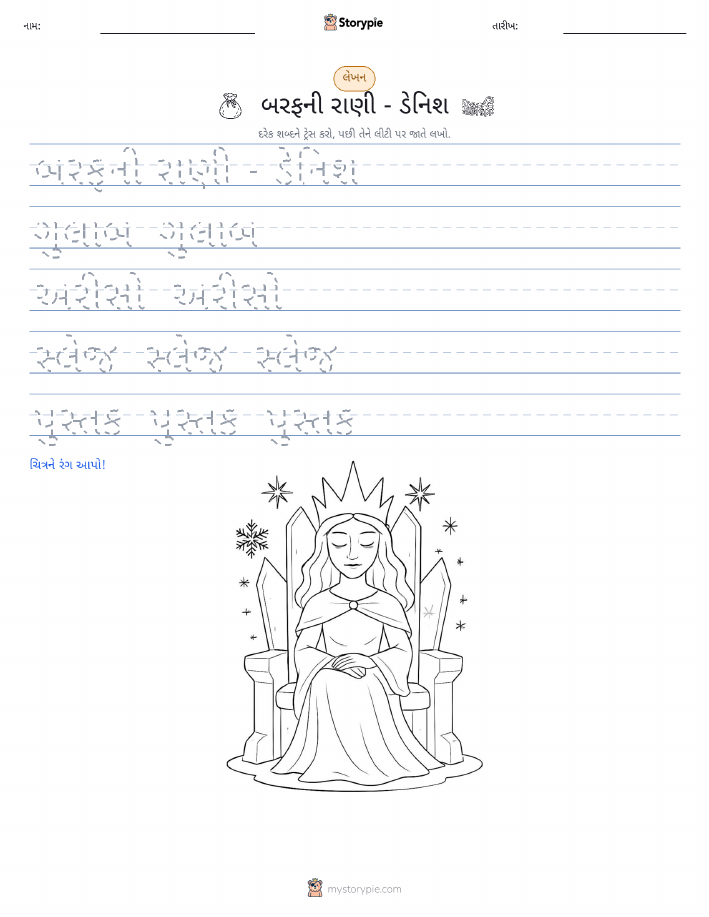 નામ:
Storypie
તારીખ:
લેખન
બરફની રાણી - ડેનિશ
દરેક શબ્દને ટ્રેસ કરો, પછી તેને લીટી પર જાતે લખો.
બરફની રાણી - ડેનિશ
ગુલાબ ગુલાબ
અરીસો અરીસો
સ્લેજ સ્લેજ સ્લેજ
પુસ્તક પુસ્તક પુસ્તક
ચિત્રને રંગ આપો!
mystorypie.com